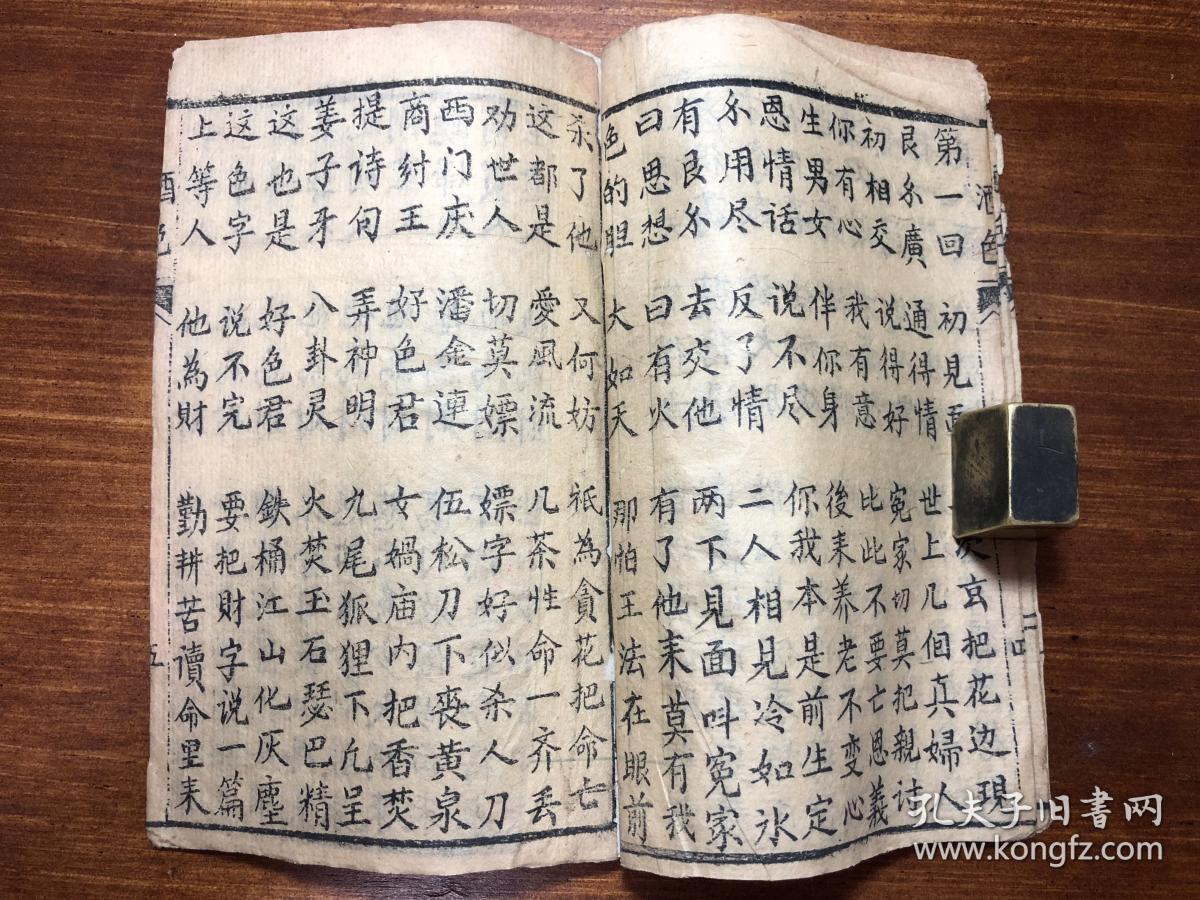 酒色
第一回 初見面 玄把花边現
艮尒廣 通得情 世上几個真婦人
初相交 说得好 冤家切莫把親討
你有心 我有意 比此不要亡恩義
生男女 伴你身 後来养老不变心
恩情话 说不尽 你我本是前生定
尒用尽 反了情 二人相見冷如氷
有艮尒 去交他 两下見面叫冤家
曰思想 曰有火 有了他来莫有我
色的胆 大如天 那怕王法在眼前
杀了他 又何妨 祇為貪花把命亡
这都是 愛風流 几茶性命一齐丢
劝世人 切莫嫖 嫖字好似杀人刀
西门庆 潘金連 伍松刀下喪黄泉
商紂王 好色君 女媧庙内把香焚
提诗句 弄神明 九尾狐狸下凢呈
姜子牙 八卦灵 火焚玉石瑟巴精
这也是 好色君 鉄桶江山化灰塵
这色字 说不完 要把財字说一篇
上等人 他為財 勤耕苦讀命里来
酒色
五
孔夫子旧书网
www.kongfz.com